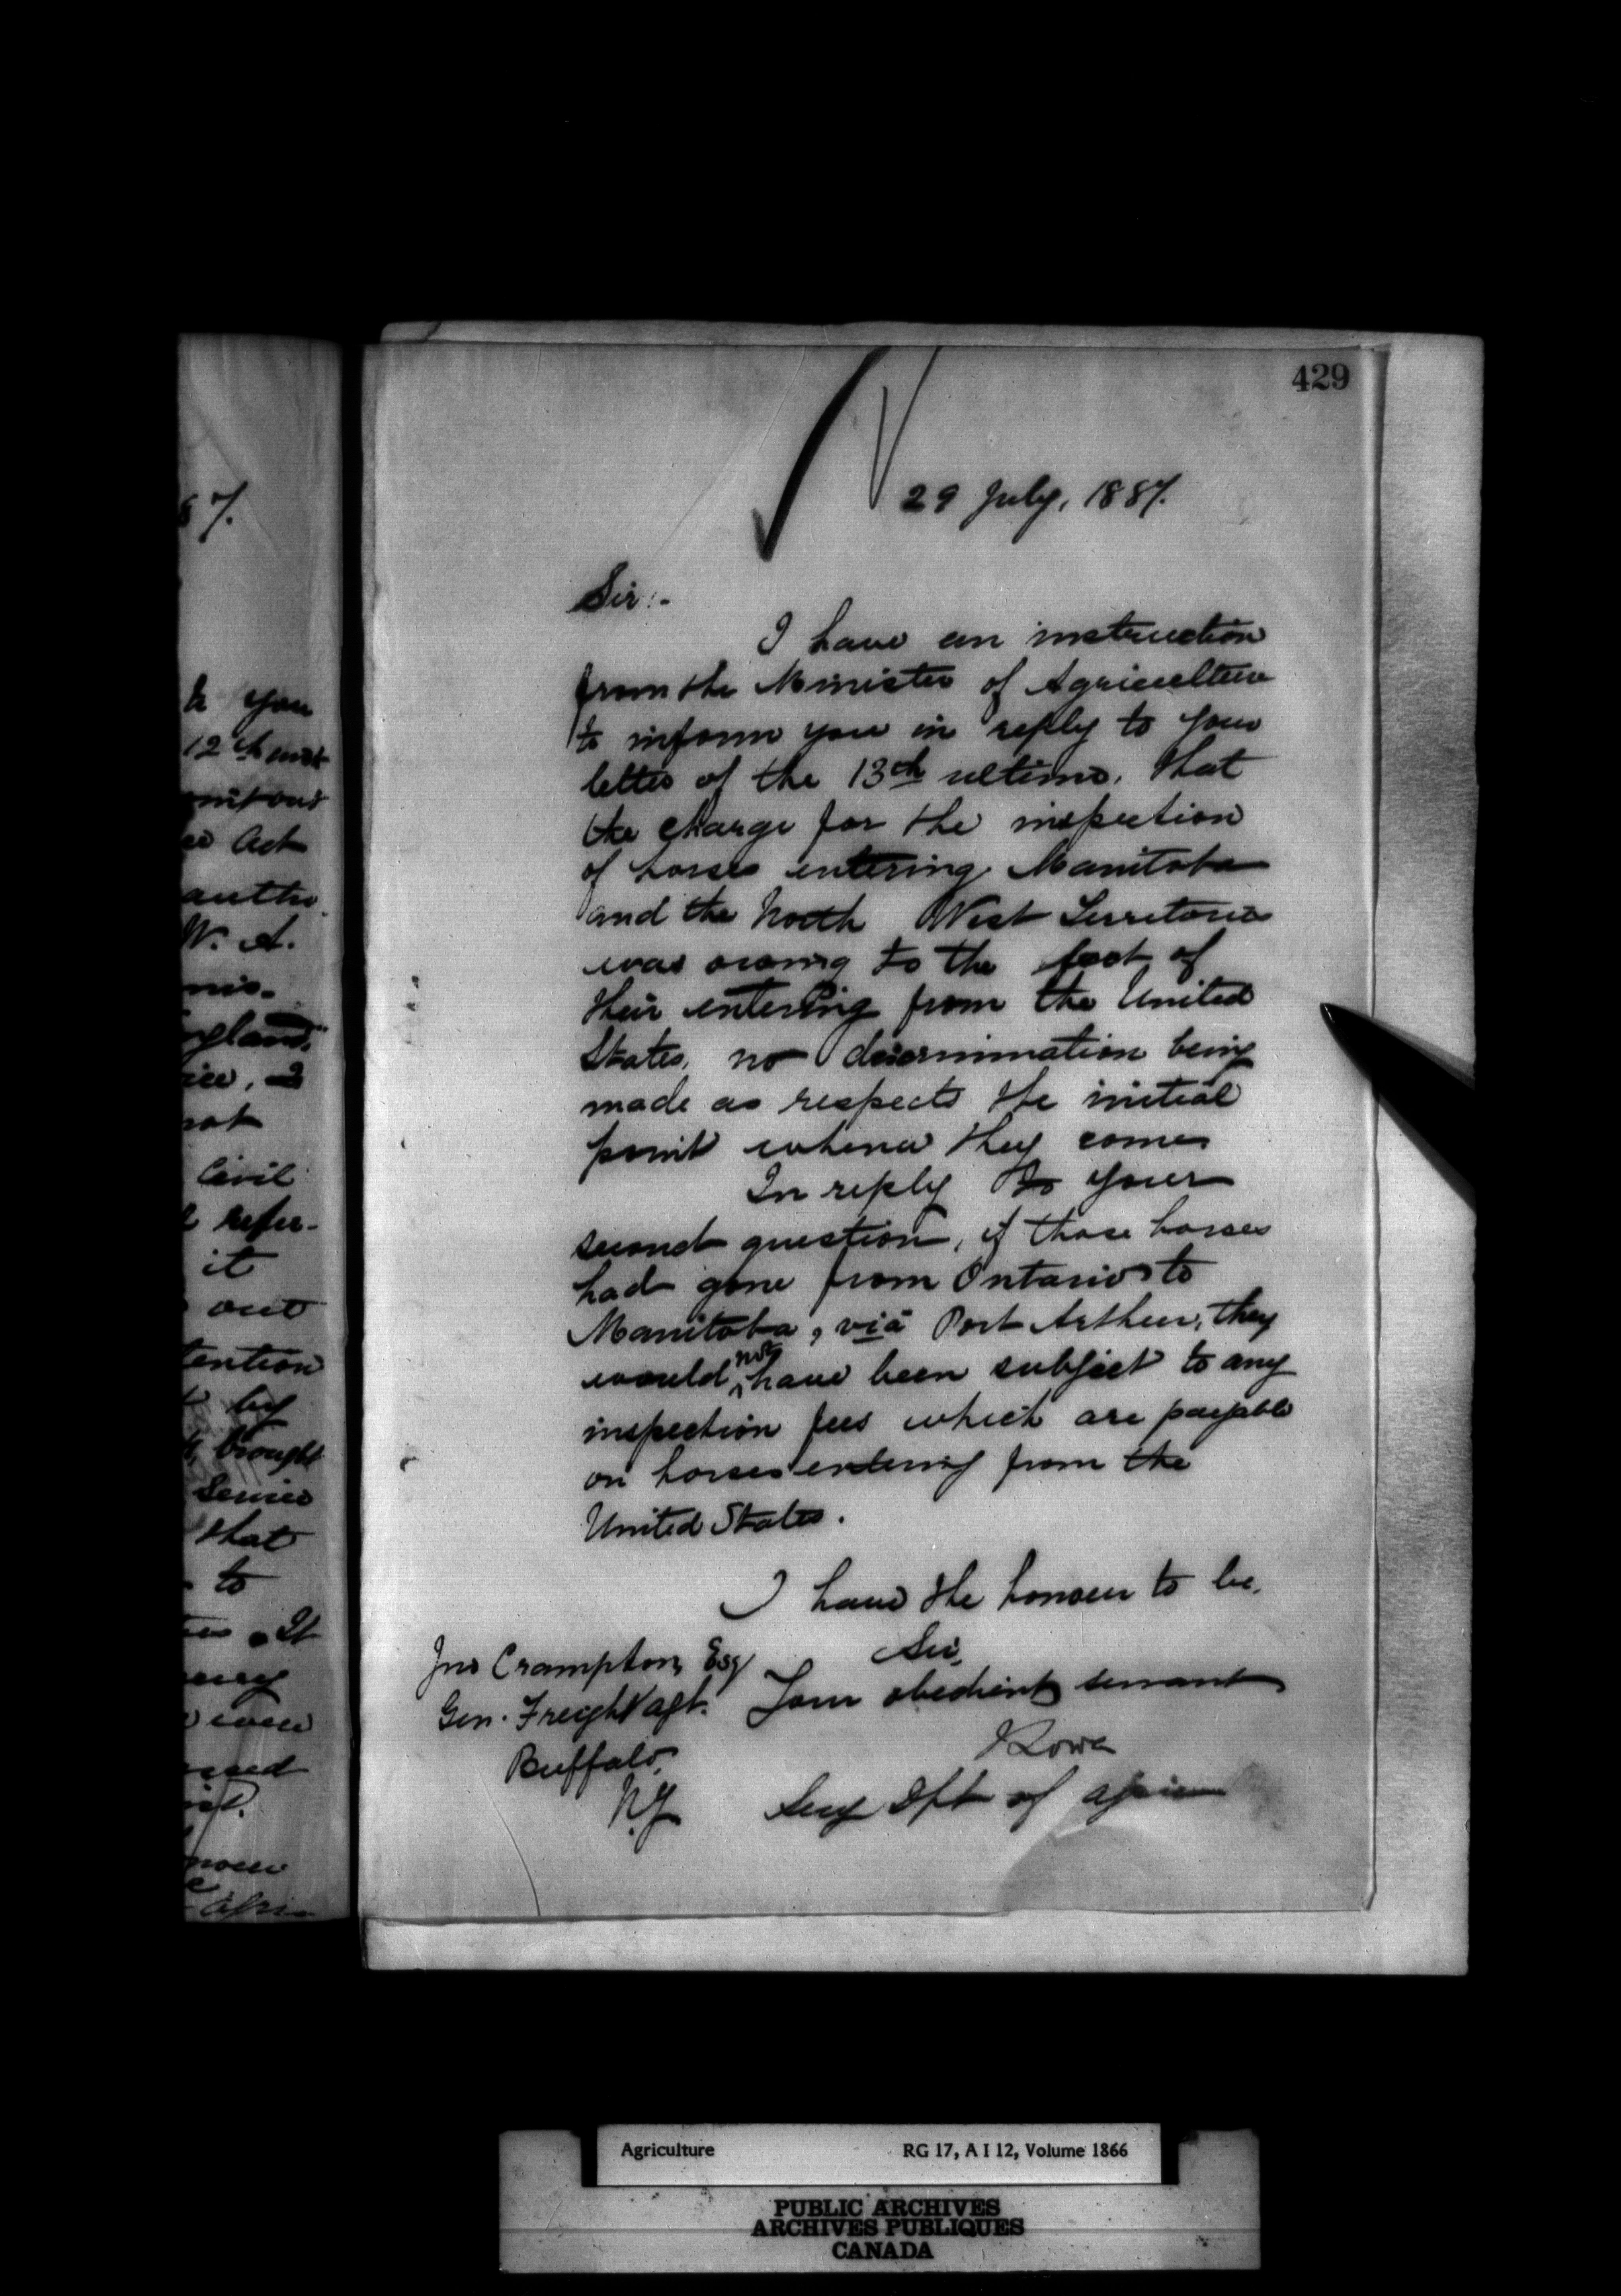 429
29 July, 1887.
Sir:-
I have an instruction
from the Minister of Agriculture
to inform you in reply to your
letter of the 13th ultimo, that
the charge for the inspection
of horses entering Manitoba
and the North West Territories
was owing to the fact of
their entering from the United
States, no discrimination being
made as respects the initial
point whence they come
In reply to your
second question, if those horses
had gone from Ontario to
Manitoba, viâ Port Arthur, they
would not have been subject to any
inspection fees which are payable
on horses entering from the
United States.
I have the honour to be,
Sir,
Your obedient servant
JLowe
Secy Dpt of Agric
Jno Crampton, Esq
Gen. Freight agt.
Buffalo,
N.Y
7.
you
12th inst
Act
autho
W. A.
mis-
gland,
ice, I
not
Civil
refer-
it
out
tention
by
brought
Service
that
to
It
Agriculture RG 17, A I 12, Volume 1866
PUBLIC ARCHIVES
ARCHIVES PUBLIQUES
CANADA